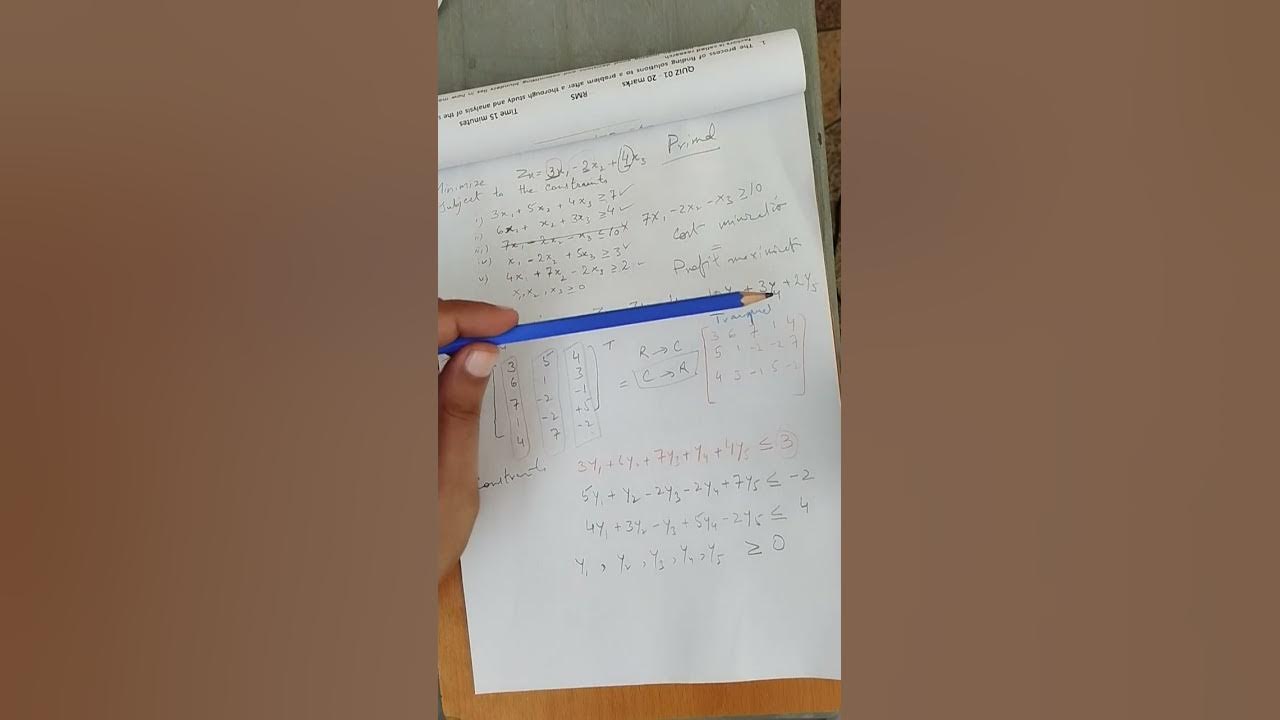 QUIZ 01 - 20 marks RMS Time 15 minutes
1. The process of finding solutions to a problem after a thorough study and analysis of the
factors is called research
Primal
Minimize Zx = 3x₁ - 2x₂ + 4x₃
Subject to the constraints
i) 3x₁ + 5x₂ + 4x₃ ≥ 7 ✓
ii) 6x₁ + x₂ + 3x₃ ≥ 4 ✓
iii) 7x₁ - 2x₂ - x₃ ≤ 10 x 7x₁ - 2x₂ - x₃ ≥ 10
iv) x₁ - 2x₂ + 5x₃ ≥ 3 ✓
v) 4x₁ + 7x₂ - 2x₃ ≥ 2 ✓
x₁, x₂, x₃ ≥ 0
Cost
=
Profit
+ 3y₄ + 2y₅
3 5 4 T
6 1 3
7 -2 -1
1 -2 +5
4 7 -2
=
R → C
C → R
3 6 7 1 4
5 1 -2 -2 7
4 3 -1 5 -2
Constraints
3y₁ + 6y₂ + 7y₃ + y₄ + 4y₅ ≤ 3
5y₁ + y₂ - 2y₃ - 2y₄ + 7y₅ ≤ -2
4y₁ + 3y₂ - y₃ + 5y₄ - 2y₅ ≤ 4
y₁, y₂, y₃, y₄, y₅ ≥ 0